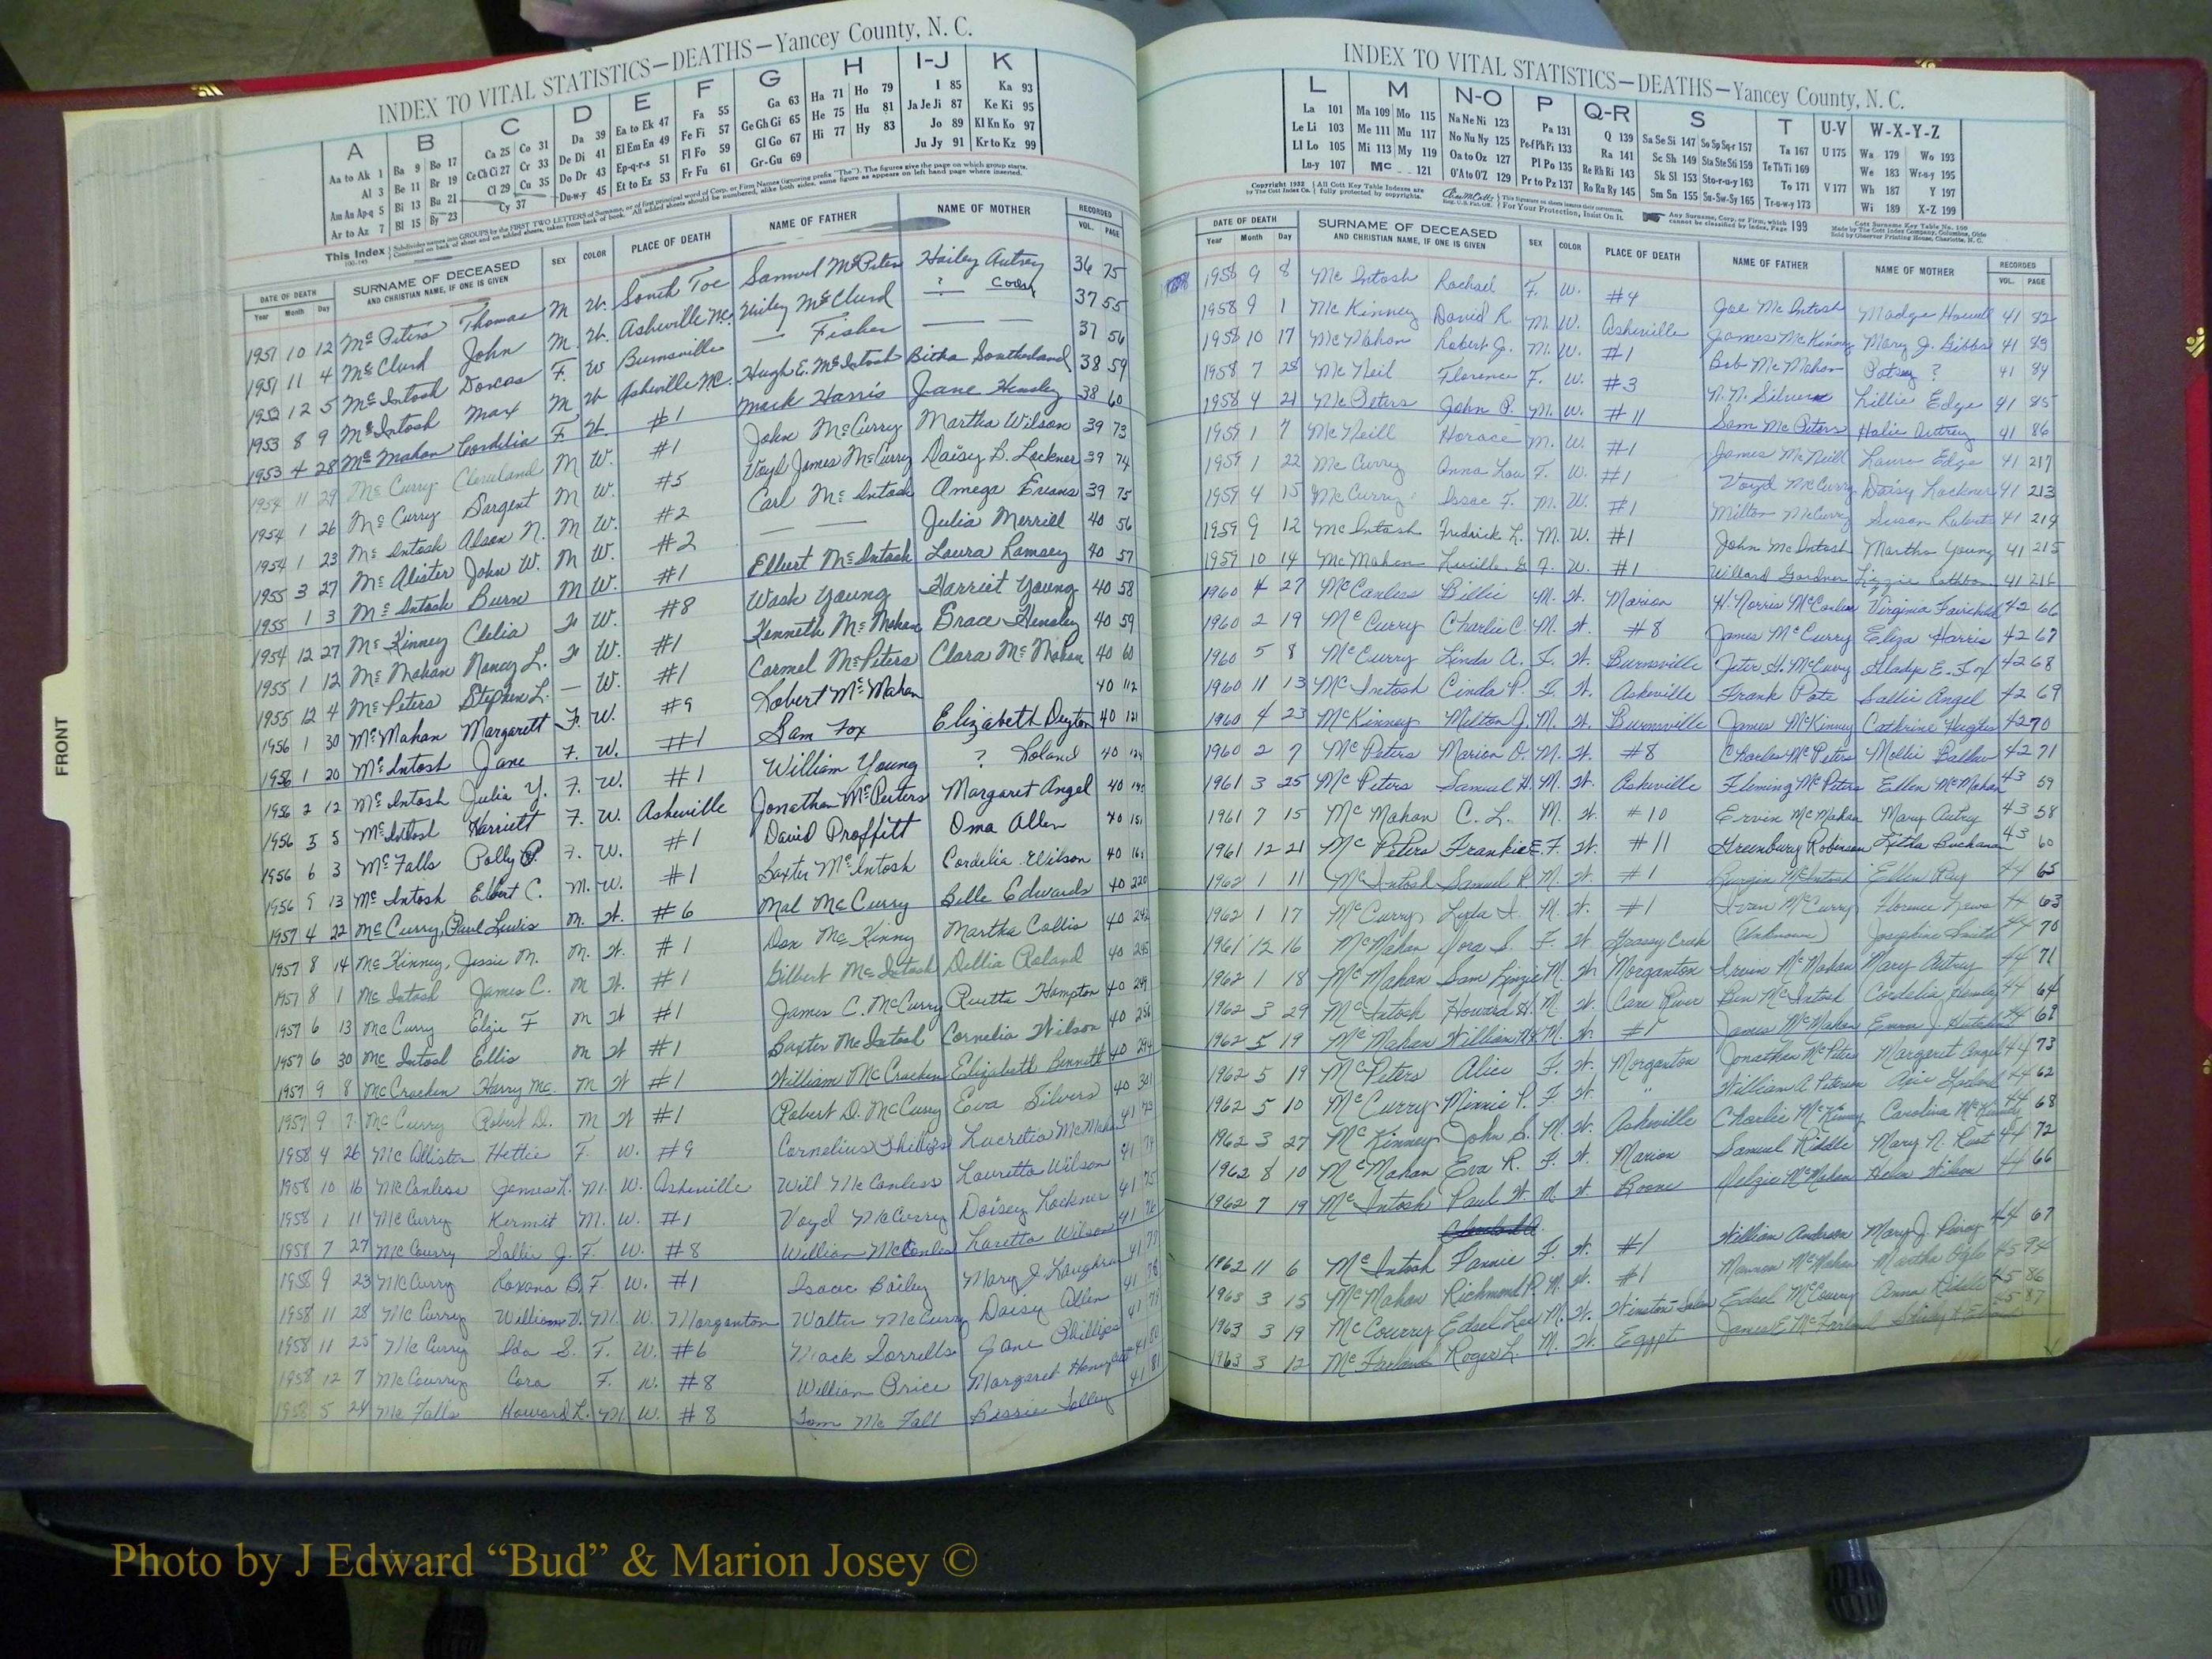 INDEX TO VITAL STATISTICS—DEATHS—Yancey County, N. C.
A B C D E F G H I-J K
Aa to Ak 1 Ba 9 Bo 17 Ca 25 Co 31 Da 39 Ea to Ek 47 Fa 55 Ga 63 Ha 71 Ho 79 I 85 Ka 93
Al 3 Be 11 Br 19 Ce Ch Ci 27 Cr 33 De Di 41 El Em En 49 Fe Fi 57 Ge Gh Gi 65 He 75 Hu 81 Ja Je Ji 87 Ke Ki 95
Am An Ap-q 5 Bi 13 Bu 21 Cl 29 Cu 35 Do Dr 43 Ep-q-r-s 51 Fl Fo 59 Gl Go 67 Hi 77 Hy 83 Jo 89 Kl Kn Ko 97
Ar to Az 7 Bl 15 By 23 Cy 37 Du-w-y 45 Et to Ez 53 Fr Fu 61 Gr-Gu 69 Ju Jy 91 Kr to Kz 99
This Index
DATE OF DEATH SURNAME OF DECEASED AND CHRISTIAN NAME, IF ONE IS GIVEN SEX COLOR PLACE OF DEATH NAME OF FATHER NAME OF MOTHER RECORDED
Year Month Day VOL. PAGE
1951 10 12 Mc Peters Thomas M W. South Toe Samuel McPeters Hailey Autrey 36 75
1951 11 4 McClurd John M. W. Asheville N.C. Wiley McClurd ? 37 55
1952 12 5 McIntosh Dorcas F. W Burnsville — Fisher 37 56
1953 8 9 McIntosh Max M W Asheville N.C. Hugh E. McIntosh Bitha Southerland 38 59
1953 4 28 McMahan Cordelia F. W. #1 Mack Harris Jane Hensley 38 60
1954 11 29 McCurry Cleveland M W. #1 John McCurry Martha Wilson 39 73
1954 1 26 McCurry Sargent M W. #5 Voyd James McCurry Daisy B. Lockner 39 74
1954 1 23 McIntosh Alson N. M W. #2 Carl McIntosh Omega Evans 39 75
1955 3 27 McAlister John W. M W. #2 — — Julia Merrill 40 56
1955 1 3 McIntosh Burn M W. #1 Elbert McIntosh Laura Ramsey 40 57
1954 12 27 McKinney Clelia F W. #8 Wash Young Harriet Young 40 58
1955 1 12 McMahan Nancy L. F W. #1 Kenneth McMahan Grace Hensley 40 59
1955 12 4 McPeters Stephen L. — W. #1 Carmel McPeters Clara McMahan 40 60
1956 1 30 McMahan Margarett F. W. #9 Robert McMahan 40 112
1956 1 20 McIntosh Jane F. W. #1 Sam Fox Elizabeth Deyton 40 121
1956 2 12 McIntosh Julia Y. F. W. #1 William Young ? Roland 40
1956 3 5 McIntosh Harriett F. W. Asheville Jonathan McPeters Margaret Angel 40
1956 6 3 McFalls Polly P. F. W. #1 David Proffitt Oma Allen 40 151
1956 9 13 McIntosh Elbert C. M. W. #1 Baxter McIntosh Cordelia Wilson 40
1957 4 22 McCurry, Paul Lewis M. W. #6 Mal McCurry Belle Edwards 40 220
1957 8 14 McKinney, Jessie M. M. W. #1 Dan McKinny Martha Collis 40 242
1957 8 1 McIntosh James C. M W. #1 Gilbert McIntosh Dellia Roland 40 245
1957 6 13 McCurry Elzie F M W #1 James C. McCurry Ruette Hampton 40 249
1957 6 30 McIntosh Ellis M W #1 Baxter McIntosh Cornelia Wilson 40 256
1957 9 8 McCracken Harry Mc. M W #1 William McCracken Elizabeth Bennett 40 294
1957 9 7 McCurry Robert D. M W #1 Robert D. McCurry Eva Silvers 40 301
1958 4 26 McAllister Hettie F. W. #9 Cornelius Phillips Lucretia McMahan 41 73
1958 10 16 McCanless James L. M. W. Asheville Will McCanless Lauretta Wilson 41 74
1958 1 11 McCurry Kermit M. W. #1 Voyd McCurry Daisey Lockner 41 75
1958 7 27 McCourry Sallie J. F. W. #8 William McCanles Laretta Wilson 41 76
1958 9 23 McCurry Roxana B. F. W. #1 Isaac Bailey Mary J. Laughrun 41 77
1958 11 28 McCurry William D. M. W. Morganton Walter McCurry Daisy Allen 41 78
1958 11 25 McCurry Ida S. F. W. #6 Mack Sorrells Jane Phillips 41 79
1958 12 7 McCourry Cora F. W. #8 William Price Margaret 41 80
1958 5 24 McFalls Howard L. M. W. #8 Tom McFall Bessie Tolley 41 81
INDEX TO VITAL STATISTICS—DEATHS—Yancey County, N. C.
L M N-O P Q-R S T U-V W-X-Y-Z
La 101 Ma 109 Mo 115 Na Ne Ni 123 Pa 131 Q 139 Sa Se Si 147 So Sp Sq-r 157 Ta 167 U 175 Wa 179 Wo 193
Le Li 103 Me 111 Mu 117 No Nu Ny 125 Pe-f Ph Pi 133 Ra 141 Sc Sh 149 Sta Ste Sti 159 Te Th Ti 169 We 183 Wr-u-y 195
Ll Lo 105 Mi 113 My 119 Oa to Oz 127 Pl Po 135 Re Rh Ri 143 Sk Sl 153 Sto-r-u-y 163 To 171 V 177 Wh 187 Y 197
Lu-y 107 Mc 121 O'A to O'Z 129 Pr to Pz 137 Ro Ru Ry 145 Sm Sn 155 Su-Sw-Sy 165 Tr-u-w-y 173 Wi 189 X-Z 199
Copyright 1932 by The Cott Index Co. All Cott Key Table Indexes are fully protected by copyrights. For Your Protection, Insist On It. Any Surname, Corp. or Firm, which cannot be classified by Index, Page 199
DATE OF DEATH SURNAME OF DECEASED AND CHRISTIAN NAME, IF ONE IS GIVEN SEX COLOR PLACE OF DEATH NAME OF FATHER NAME OF MOTHER RECORDED
Year Month Day VOL. PAGE
1958 9 8 McIntosh Rachael F. W. #4 Joe McIntosh Madge Howell 41 82
1958 9 1 McKinney David R M. W. Asheville James McKinney Mary J. Gibbs 41 83
1958 10 17 McMahan Robert J. M. W. #1 Bob McMahan Patsey ? 41 84
1958 7 28 McNeil Florence F. W. #3 N. N. Silver Lillie Edge 41 85
1958 4 21 McPeters John P. M. W. #11 Sam McPeters Halie Autrey 41 86
1959 1 7 McNeill Horace M. W. #1 James McNeill Laura Edge 41 217
1959 1 22 McCurry Anna Lou F. W. #1 Voyd McCurry Daisy Lockner 41 213
1959 4 15 McCurry Isaac F. M. W. #1 Milton McCurry Susan Roberts 41 214
1959 9 12 McIntosh Fredrick L. M. W. #1 John McIntosh Martha Young 41 215
1959 10 14 McMahan Lucille G F. W. #1 Willard Gardner Lizzie Rathbon 41 216
1960 4 27 McCanless Billie M. W. Marion H. Norris McCanless Virginia Fairchild 42 66
1960 2 19 McCurry Charlie C. M. W. #8 James McCurry Eliza Harris 42 67
1960 5 8 McCurry Linda A. F. W. Burnsville Jeter H. McCurry Gladys E. Fox 42 68
1960 11 13 McIntosh Cinda P. F. W. Asheville Frank Pate Sallie Angel 42 69
1960 4 23 McKinney Milton J. M. W. Burnsville James McKinney Cathrine Hughes 42 70
1960 2 7 McPeters Marion O. M. W. #8 Charles McPeters Mollie Ballew 42 71
1961 3 25 McPeters Samuel H. M. W. Asheville Fleming McPeters Ellen McMahan 43 59
1961 7 15 McMahan C. L. M. W. #10 Ervin McMahan Mary Autry 43 58
1961 12 21 McPeters Frankie E. F. W. #11 Greenbury Robinson Letha Buchanan 43 60
1962 1 11 McIntosh Samuel R. M. W. #1 Burgin McIntosh Ellen Ray 44 65
1962 1 17 McCurry Lyda I. M. W. #1 Ivan McCurry Florence 44 63
1961 12 16 McMahan Dora S. F. W. Grassy Creek (Unknown) Josephine Smith 44 70
1962 1 18 McMahan Sam M. W. Morganton Irvin McMahan Mary Autrey 44 71
1962 3 29 McIntosh Howard H. M. W. Cane River Ben McIntosh Cordelia Hensley 44 64
1962 5 19 McMahan William M. W. #1 James McMahan Emma J. 44 69
1962 5 19 McPeters Alice F. W. Morganton Jonathan McPeters Margaret Angel 44 73
1962 5 10 McCurry Minnie P. F W. " William A. Peterson 44 62
1962 3 27 McKinney John S. M. W. Asheville Charlie McKinney Carolina McKinney 44 68
1962 8 10 McMahan Eva R. F. W. Marion Samuel Riddle Mary N. Rust 44 72
1962 7 19 McIntosh Paul W. M. W. Boone Helen Wilson 44 66
1962 11 6 McIntosh Fannie F. W. #1 William Anderson Mary J. 44 67
1963 3 15 McMahan Richmond P. M. W. #1 McMahan Martha 45 94
1963 3 19 McCourry Edsel Lee M. W. Winston-Salem Edsel McCourry Anna Riddle 45 86
1963 3 12 McFarland Roger L. M. W. Egypt James E McFarland 45 87
FRONT
Photo by J Edward “Bud” & Marion Josey ©